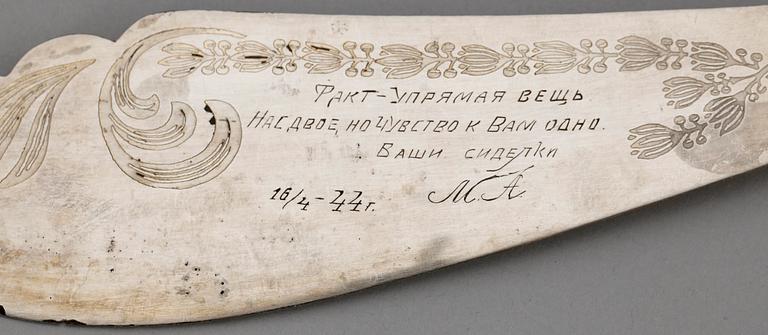 Факт-упрямая вещь.
Нас двое, но чувство к Вам одно.
Ваши сиделки
16/4-44г. М.А.